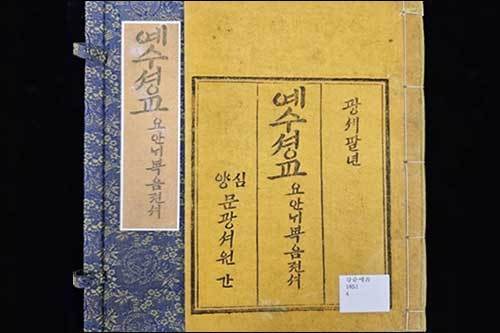 예수셩교 요안늬복음젼셔
광셰팔년
예수셩교 요안늬복음젼셔
심양 문광셔원 간